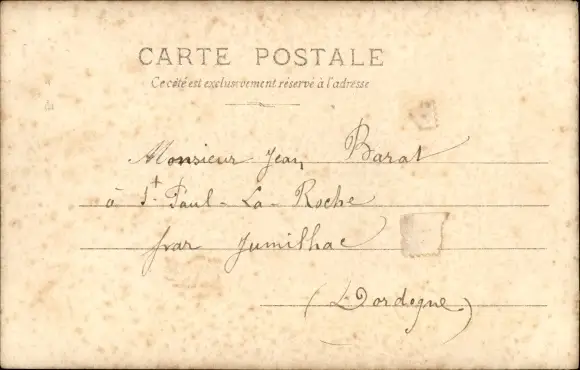 CARTE POSTALE
Ce côté est exclusivement réservé à l'adresse
Monsieur Jean Barat
à St Paul-La-Roche
par Jumilhac
(Dordogne)